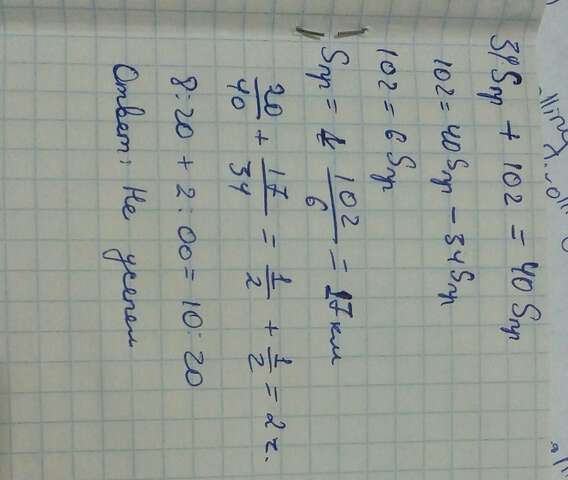 34Sпр + 102 = 40Sпр
102 = 40Sпр - 34Sпр
102 = 6Sпр
Sпр = 102/6 = 17 км
20/40 + 17/34 = 1/2 + 1/2 = 2 ч.
8:20 + 2:00 = 10:20
Ответ: Не успеем